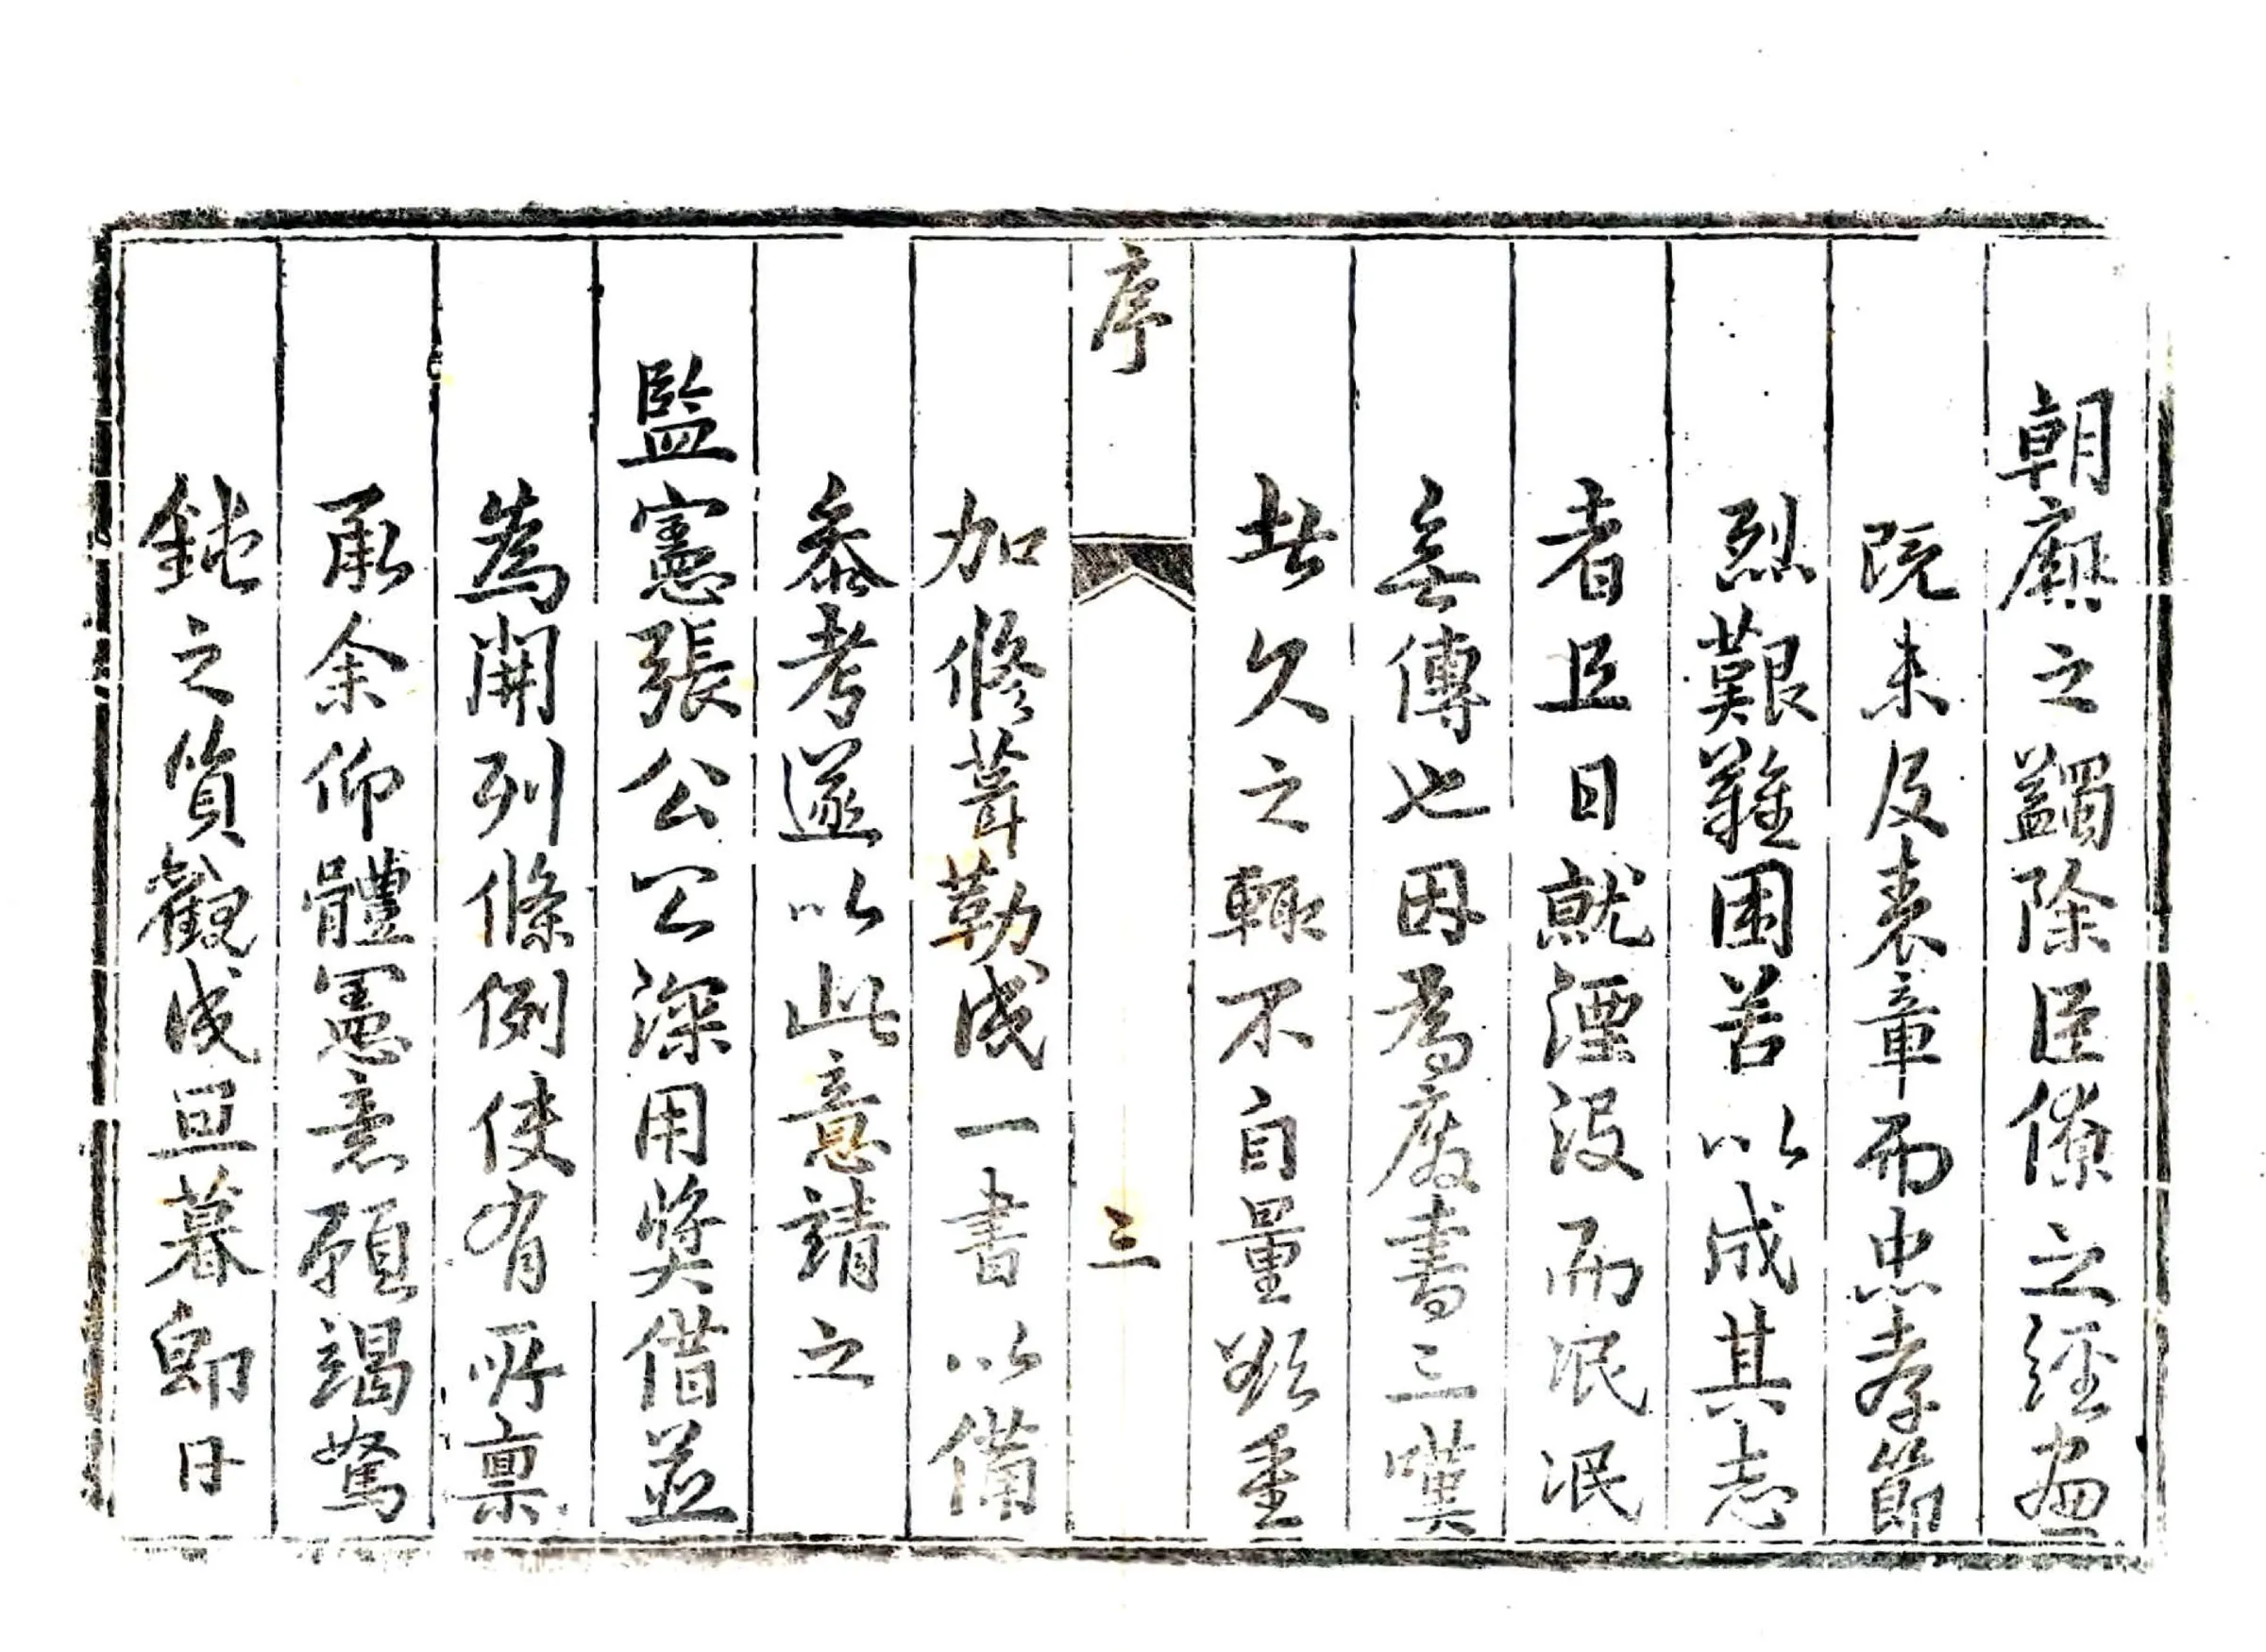 朝廟之蠲除臣僚之經畫
既未及表章而忠孝節
烈艱難困苦以成其志
者且日就湮没而泯泯
無傳也因為廢書三嘆
者久之輒不自量欲重
序
三
加修葺勒成一書以備
叅考遂以此意請之
監憲張公公深用奬借並
為開列條例使有所禀
承余仰體憲意願竭駑
鈍之質觀成旦暮即日